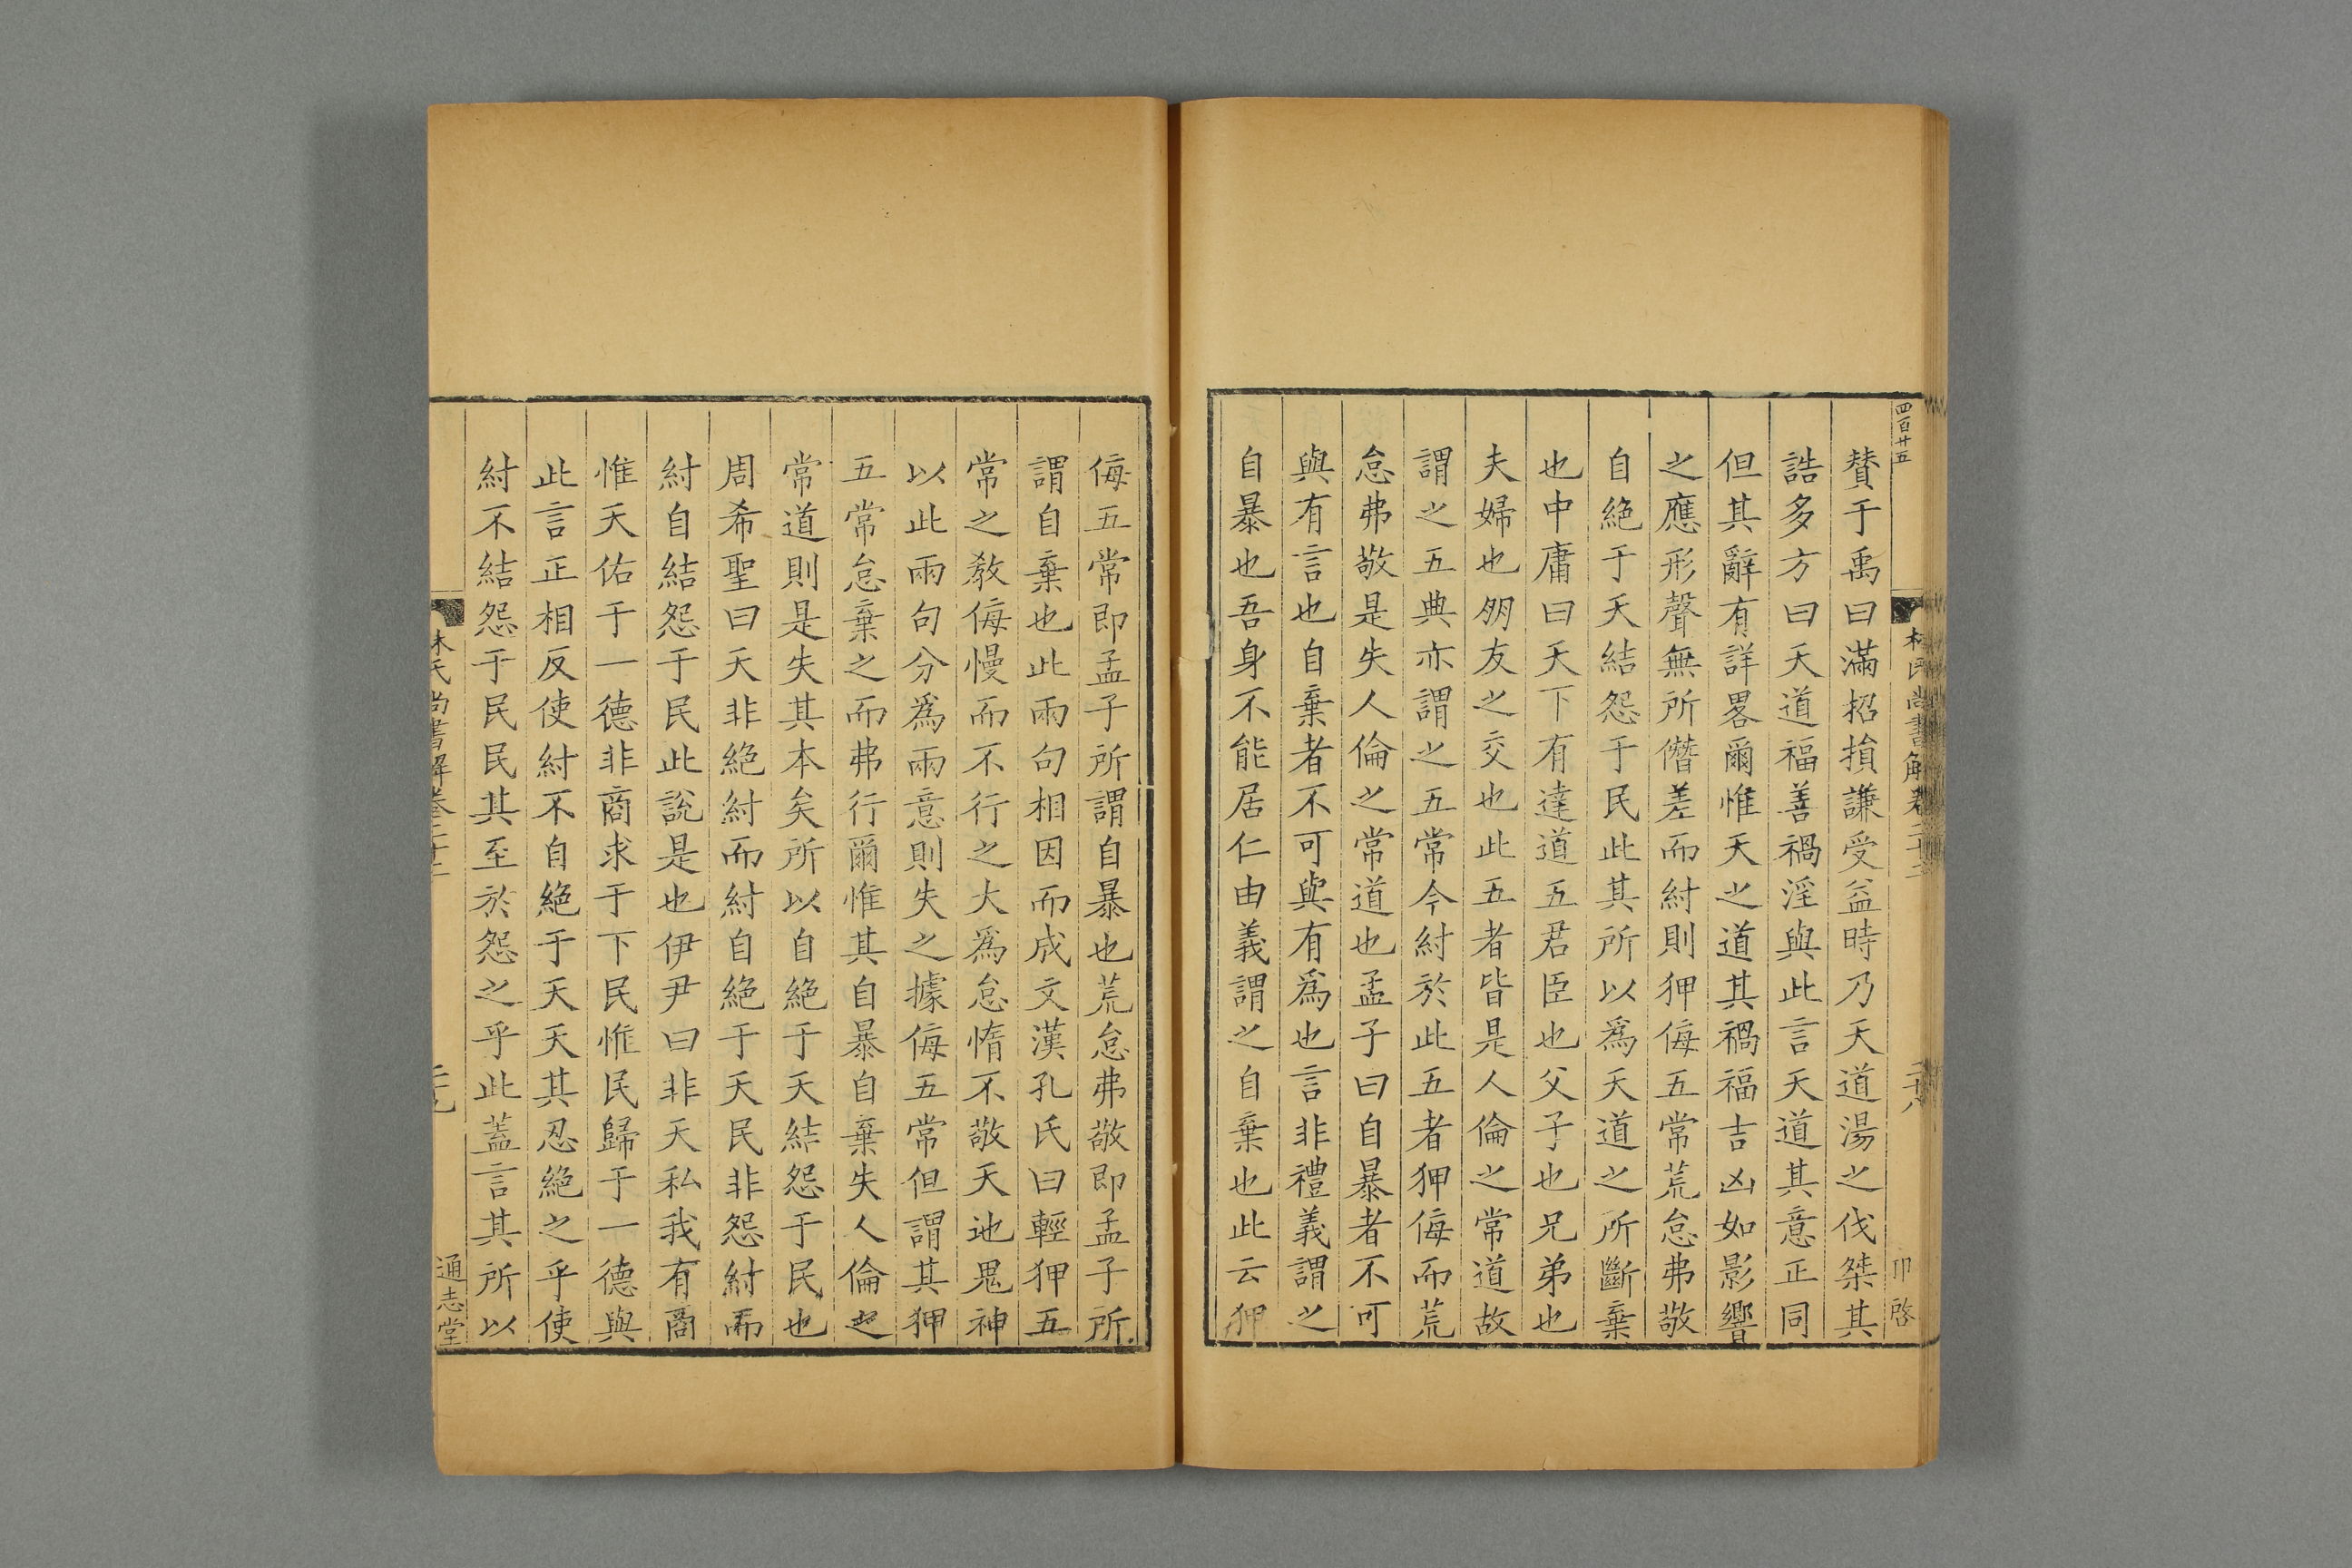 四百廿五
林氏尚書解卷二十二
二十八
卬啓
賛于禹曰滿招損謙受益時乃天道湯之伐桀其
誥多方曰天道福善禍淫與此言天道其意正同
但其辭有詳畧爾惟天之道其禍福吉凶如影響
之應形聲無所僭差而紂則狎侮五常荒怠弗敬
自絶于天結怨于民此其所以爲天道之所斷棄
也中庸曰天下有達道五君臣也父子也兄弟也
夫婦也朋友之交也此五者皆是人倫之常道故
謂之五典亦謂之五常今紂於此五者狎侮而荒
怠弗敬是失人倫之常道也孟子曰自暴者不可
與有言也自棄者不可與有爲也言非禮義謂之
自暴也吾身不能居仁由義謂之自棄也此云狎
侮五常即孟子所謂自暴也荒怠弗敬即孟子所
謂自棄也此兩句相因而成文漢孔氏曰輕狎五
常之敎侮慢而不行之大爲怠惰不敬天地鬼神
以此兩句分爲兩意則失之據侮五常但謂其狎
五常怠棄之而弗行爾惟其自暴自棄失人倫之
常道則是失其本矣所以自絶于天結怨于民也
周希聖曰天非絶紂而紂自絶于天民非怨紂而
紂自結怨于民此說是也伊尹曰非天私我有商
惟天佑于一德非商求于下民惟民歸于一德與
此言正相反使紂不自絶于天天其忍絶之乎使
紂不結怨于民民其至於怨之乎此蓋言其所以
林氏尚書解卷二十二
二十九
通志堂